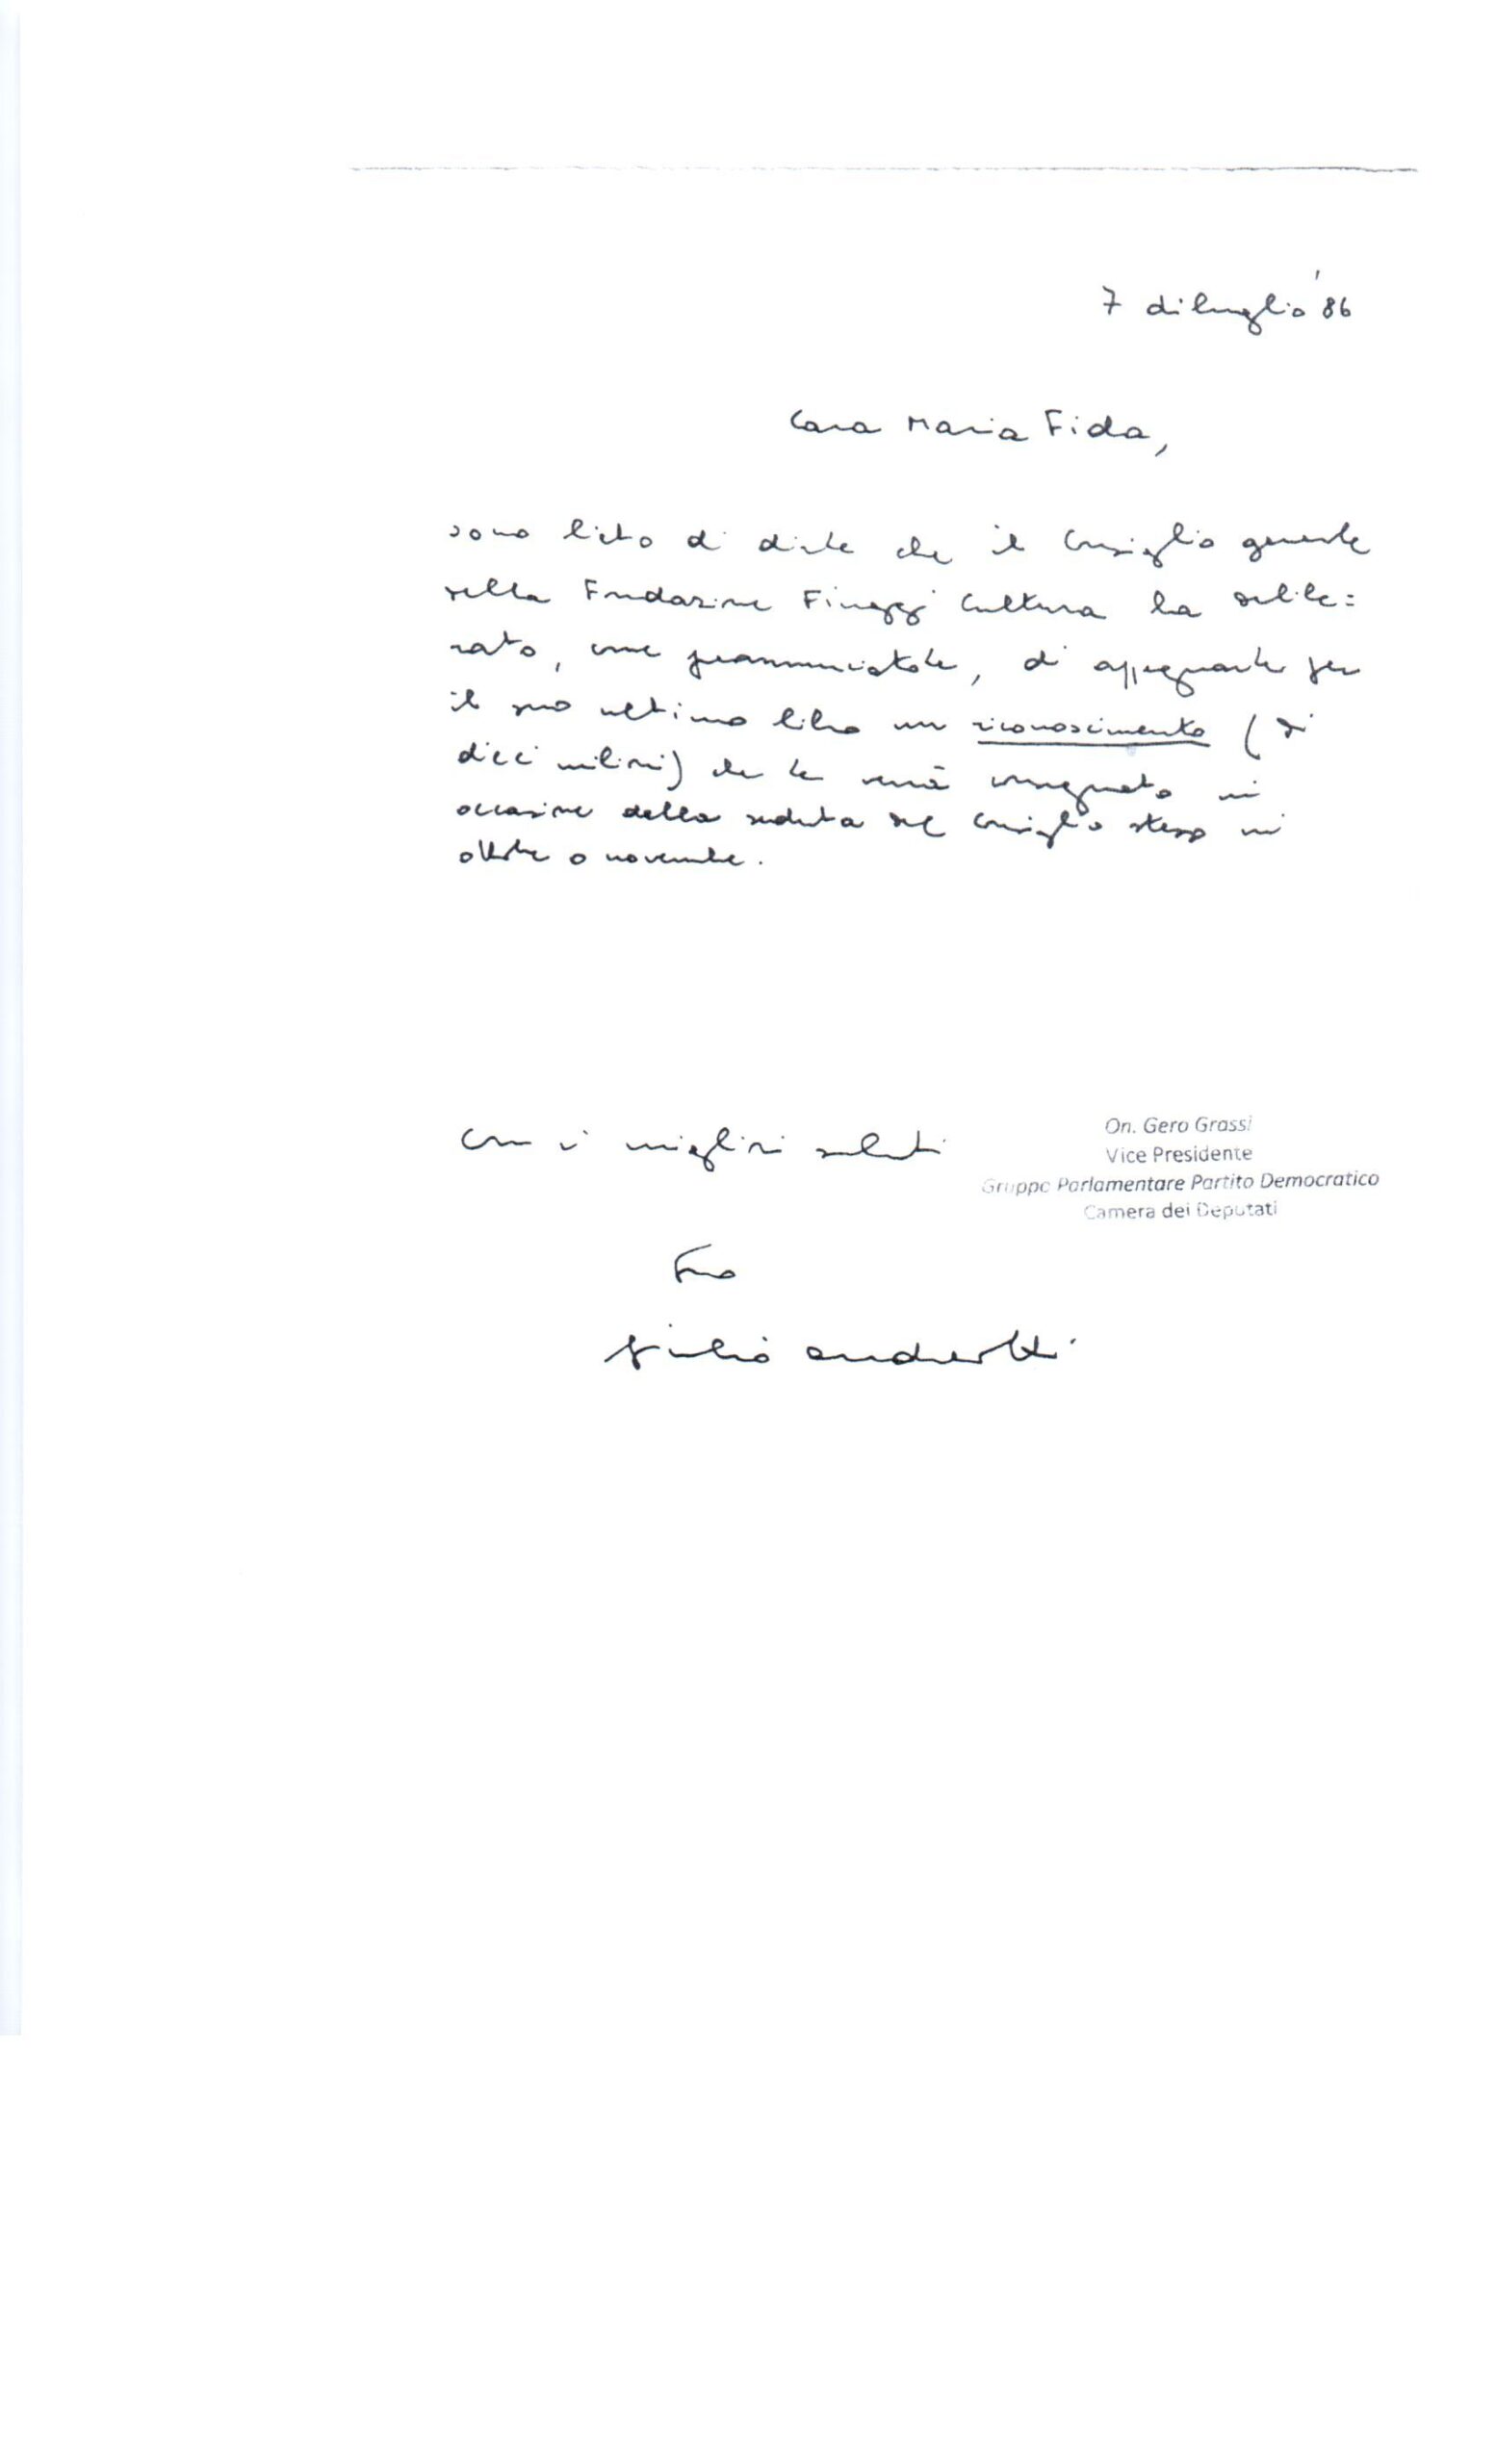 7 di luglio '86
Cara Maria Fida,
sono lieto di dirle che il Consiglio generale
della Fondazione Fiuggi Cultura ha delibe=
rato, come preannunciatole, di assegnarle per
il suo ultimo libro un riconoscimento (di
dieci milioni) che le verrà consegnato in
occasione della seduta del Consiglio stesso in
ottobre o novembre.
Con i migliori saluti
On. Gero Grassi
Vice Presidente
Gruppo Parlamentare Partito Democratico
Camera dei Deputati
Giulio Andreotti